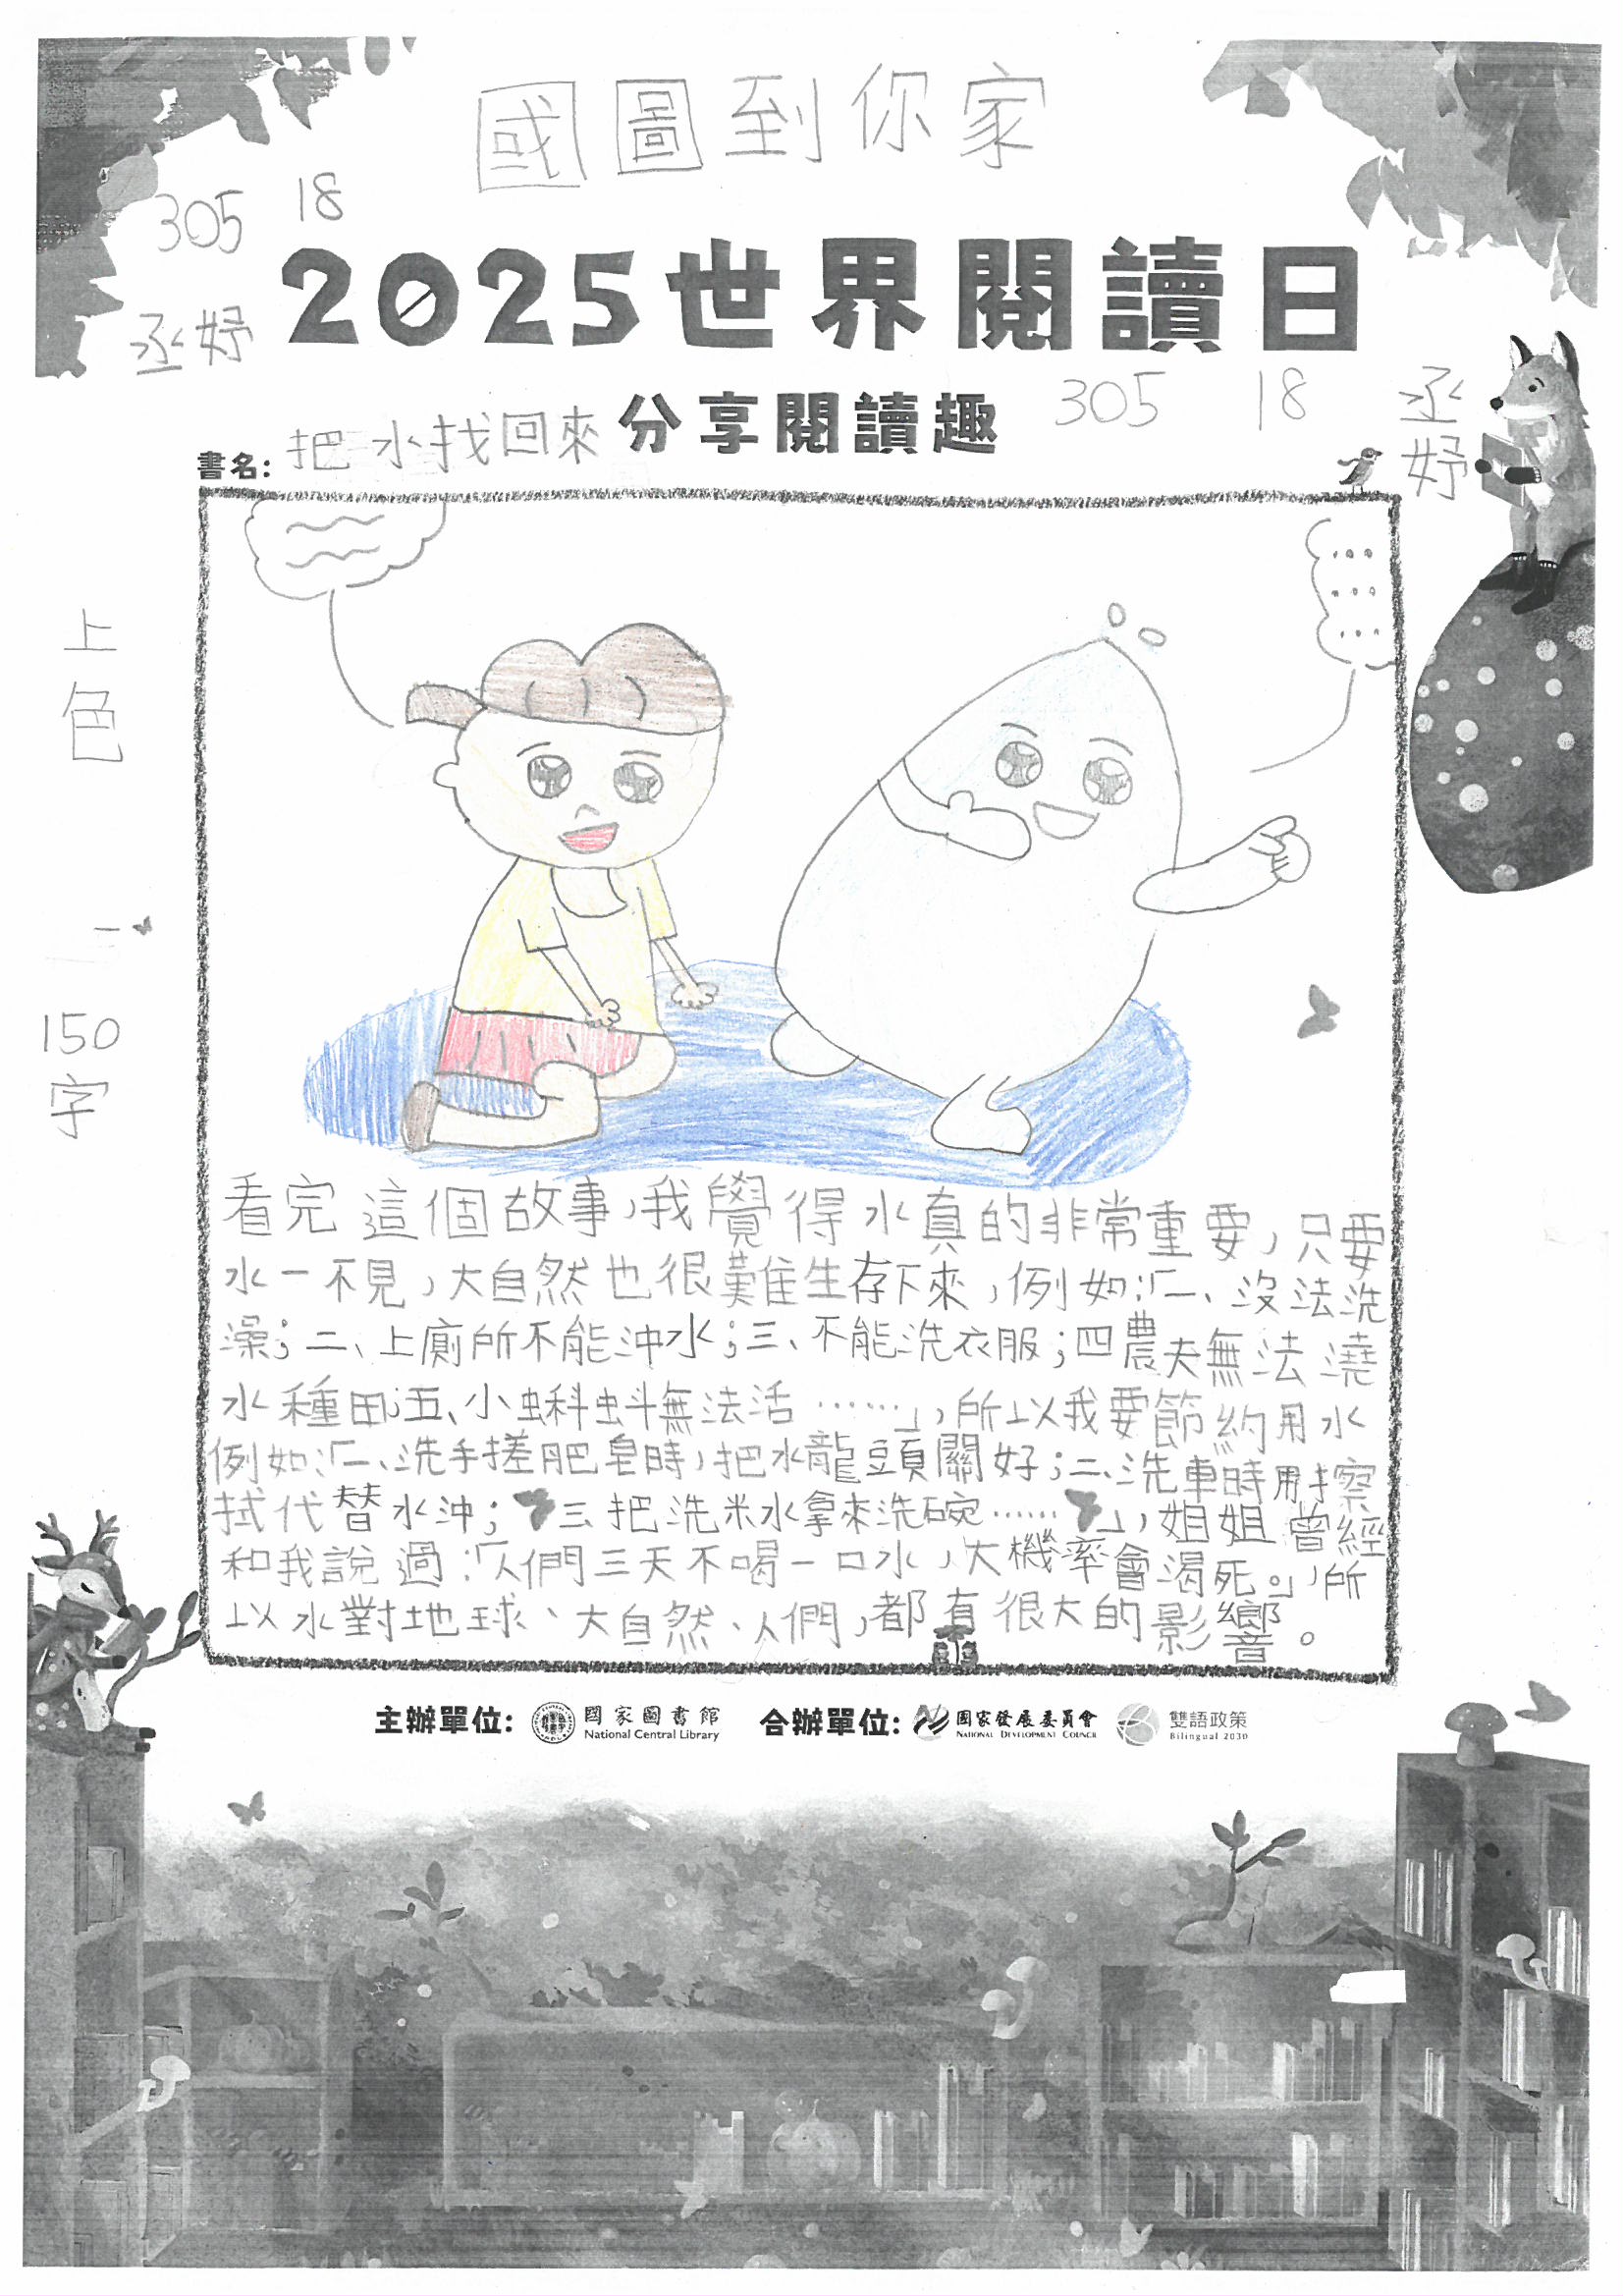 國圖到你家
305 18
2025世界閱讀日
丞妤
分享閱讀趣
305 18 丞妤
書名: 把水找回來
上色
150字
看完這個故事,我覺得水真的非常重要,只要
水一不見,大自然也很難生存下來,例如:「一、沒法洗
澡;二、上廁所不能沖水;三、不能洗衣服;四農夫無法澆
水種田;五、小蝌蚪無法活……」,所以我要節約用水
例如:「一、洗手搓肥皂時,把水龍頭關好;二、洗車時用擦
拭代替水沖;三、把洗米水拿來洗碗……」,姐姐曾經
和我說過:「人們三天不喝一口水,大機率會渴死。」,所
以水對地球、大自然、人們,都有很大的影響。
主辦單位: 國家圖書館 National Central Library 合辦單位: 國家發展委員會 NATIONAL DEVELOPMENT COUNCIL 雙語政策 Bilingual 2030